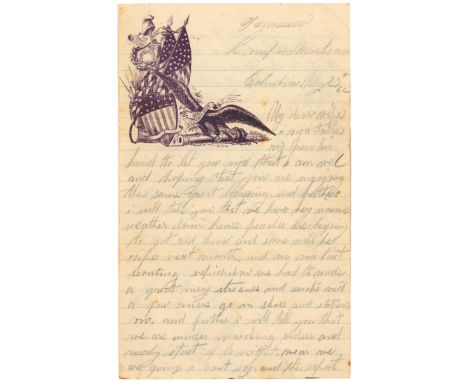 Tennessee
Camp
Columbia May 2
62
My dear wife
i now take
my pen in
hand to let you now that i am well
and hoping that you are enjoying
the same great blessing and further
i will tell you that we have warm
weather down hear peaches be begining
to get red hear and some will be
ripe next month, and on our last
scouting expedition we had to wade
a great many streames and creeks and
a few rivers, go on shoes and clothes
on. and further i will tell you that
we are under marching orders and
we
are going i cant say and the report